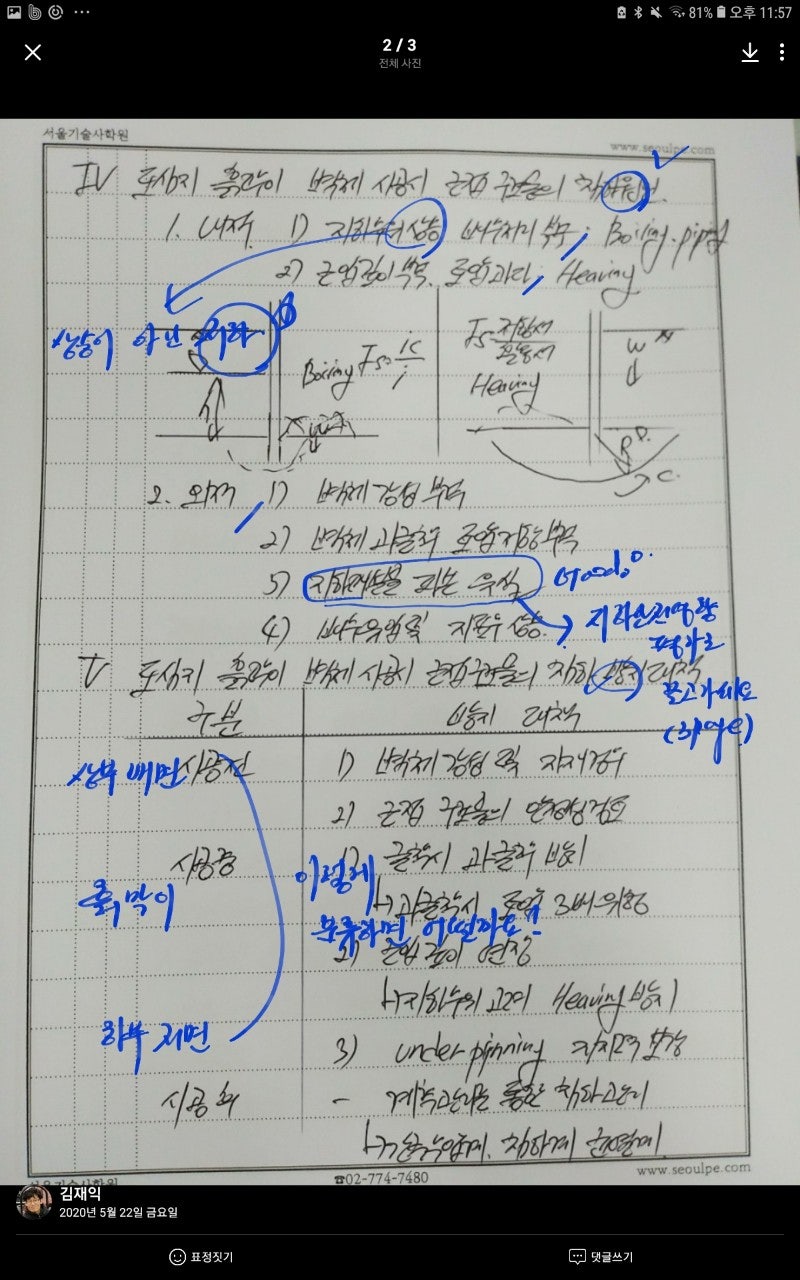 81% 오후 11:57
2 / 3
전체 사진
서울기술사학원
www.seoulpe.com
IV 도심지 흙막이 벽체 시공시 근접 구조물의 침하원인
1. 내적 1) 지하수위 상승 배수처리 부족 ; Boiling. piping
2) 근입깊이 부족. 토압 과다 ; Heaving
상승이 아닌 저하
Boiling Fs = ic/i
Fs = 저항/활동
Heaving
W
R
C.
2. 외적 1) 벽체 강성 부족
2) 벽체 과굴착 토압 저항 부족
3) 지하매설물 파손 유실
Good!
4) 배수유입 및 지표수 상승
지하안전영향
평가로
V 도심지 흙막이 벽체 시공시 근접구조물의 침하 방지 대책
몰고가세요
구분
방지 대책
상부 배면
시공전
1) 벽체 강성 및 자재검수
2) 근접 구조물의 안정성 검토
시공중
1) 굴착시 과굴착 방지
이렇게
흙막이
↳ 과굴착시 토압 3배 위험
분류하면 어떨까요!!
2) 근입 깊이 연장
↳ 지하수위 고려 Heaving 방지
하부 지면
3) under pinning 지지력 보강
시공 후
- 계측관리를 통한 침하관리
↳ 간극수압계. 침하계. 균열계.
서울기술사학원
☎02-774-7480
www.seoulpe.com
김재익
2020년 5월 22일 금요일
표정짓기
댓글쓰기